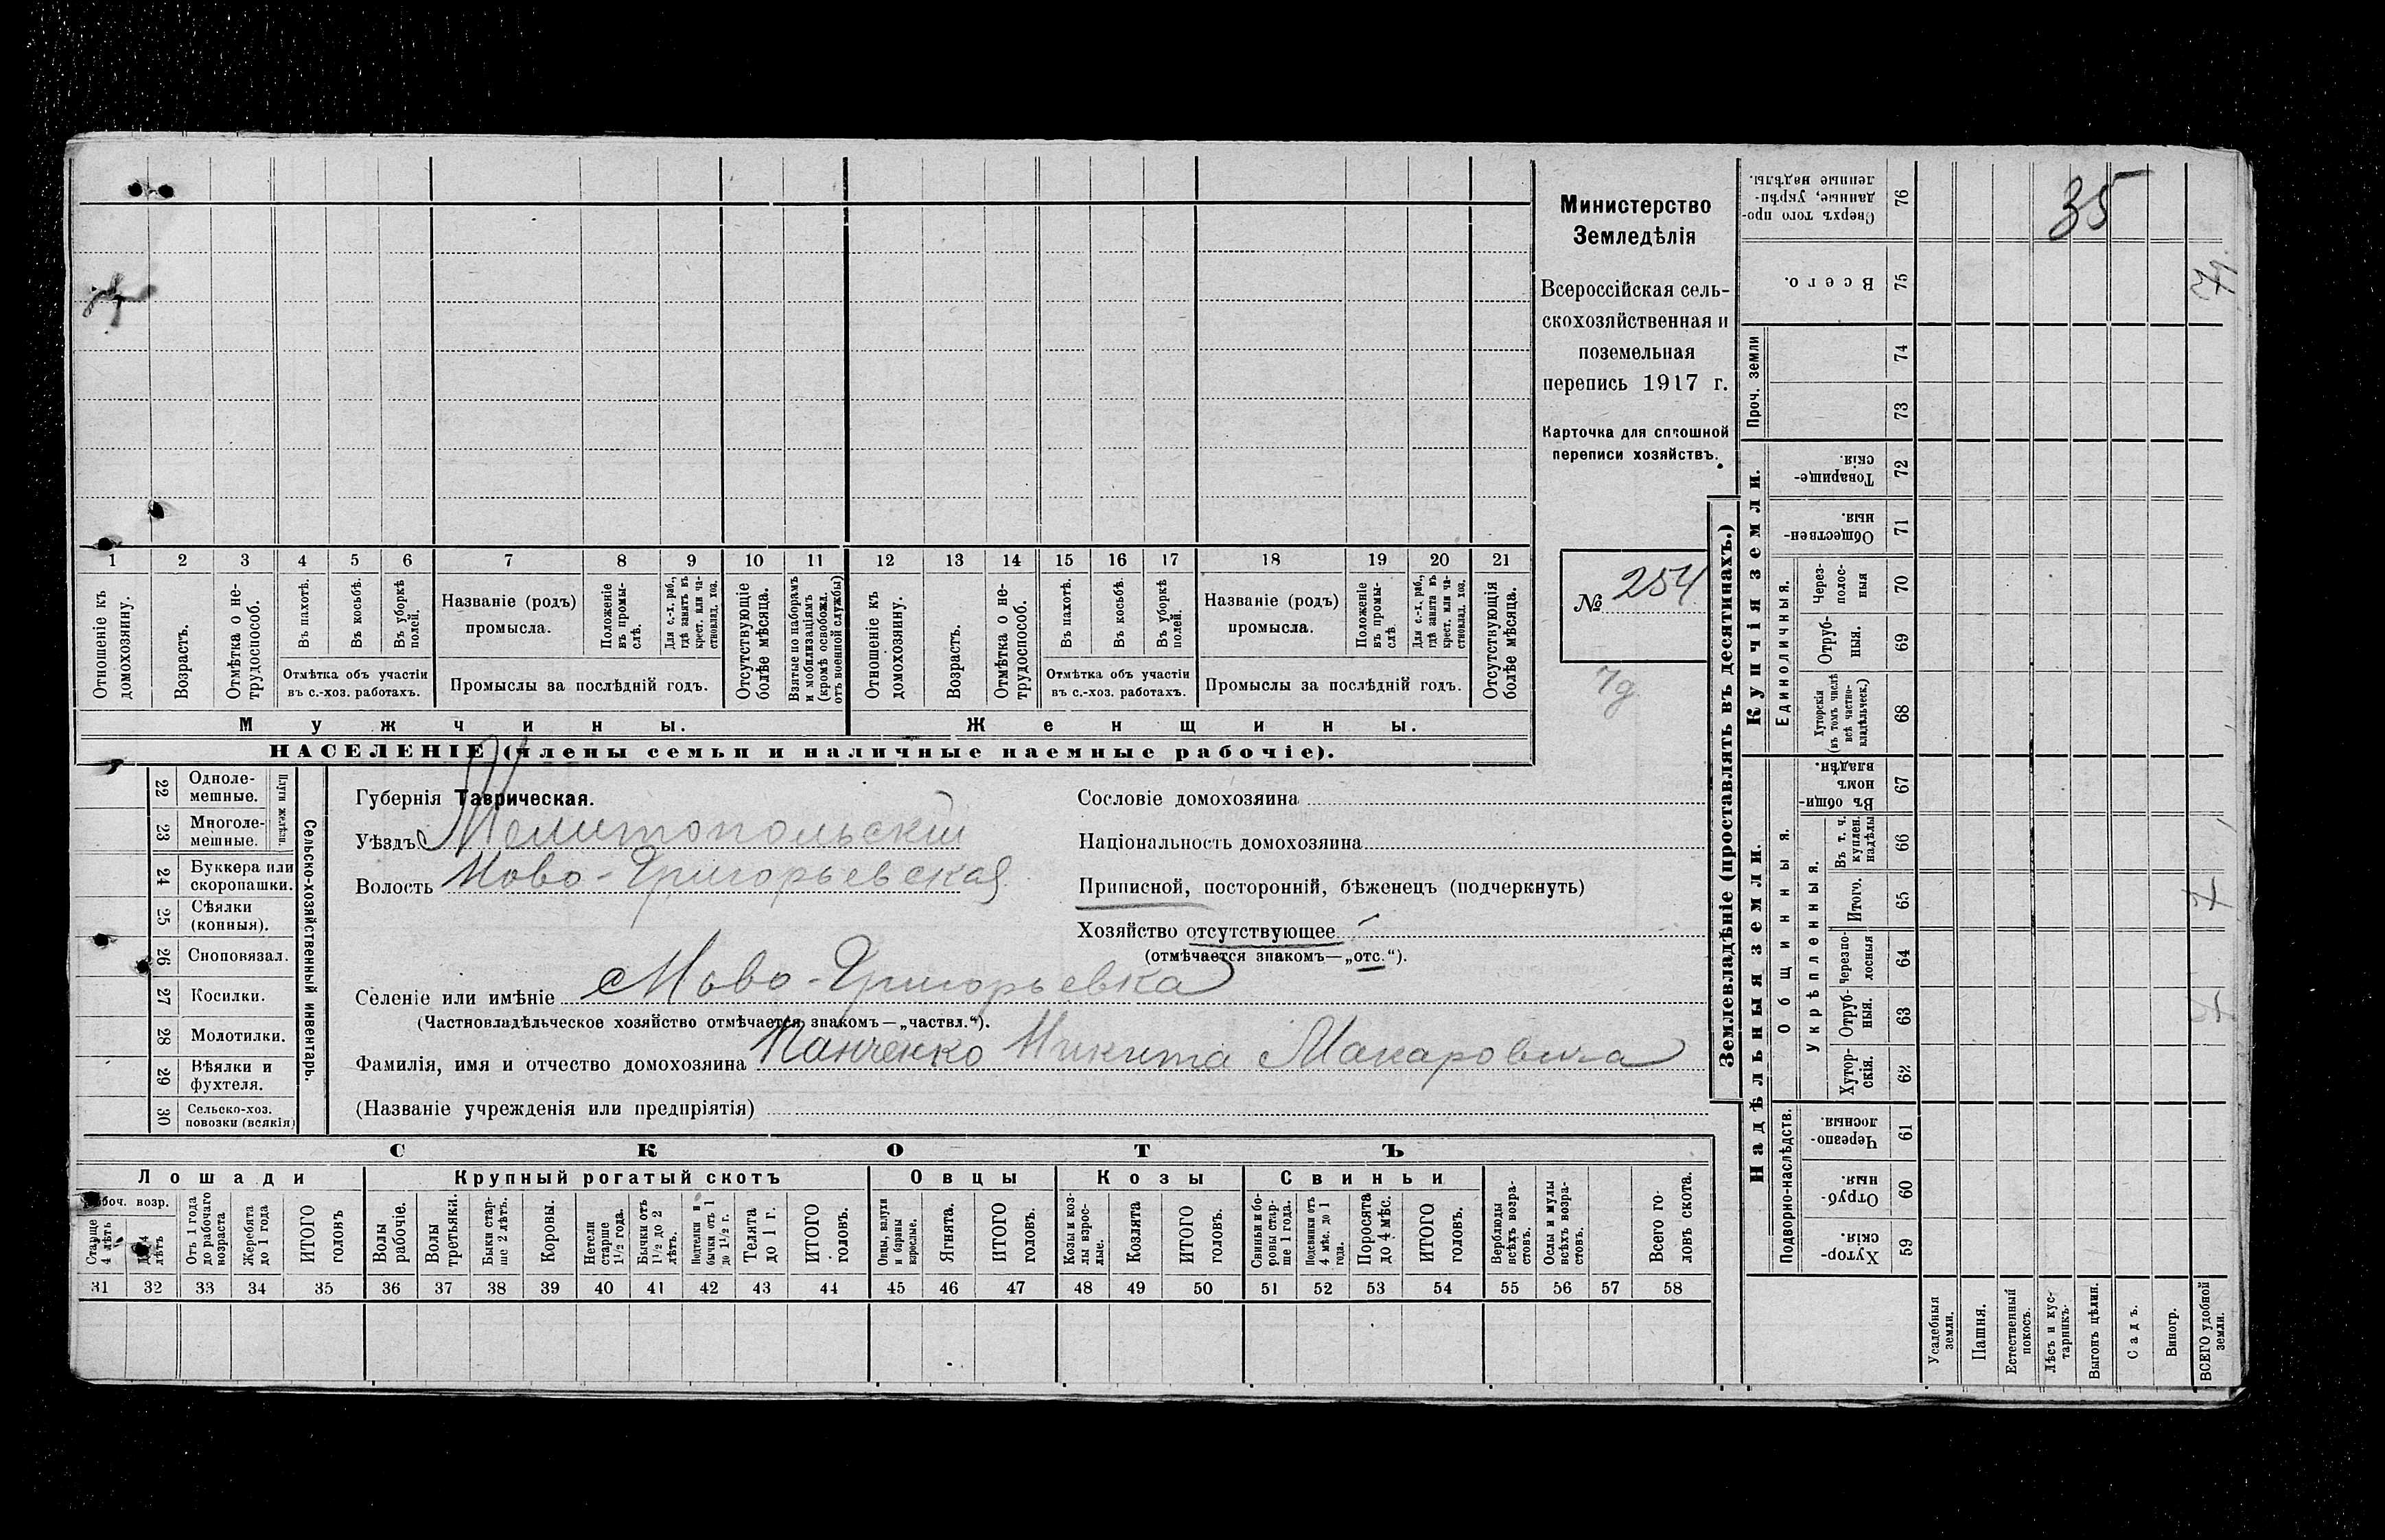 35
Министерство
Земледѣлія
Всероссійская сель-
скохозяйственная и
поземельная
перепись 1917 г.
Карточка для сплошной
переписи хозяйствъ.
№ 254
1 2 3 4 5 6 7 8 9 10 11 12 13 14 15 16 17 18 19 20 21
Отношеніе къ домохозяину.
Возрастъ.
Отмѣтка о не-трудоспособ.
Въ пахотѣ.
Въ косьбѣ.
Въ уборкѣ полей.
Отмѣтка объ участіи
въ с.-хоз. работахъ.
Названіе (родъ)
промысла.
Положеніе въ промы-слѣ.
Для с.-х. раб., гдѣ занятъ въ крест. или ча-стновлад. хоз.
Промыслы за послѣдній годъ.
Отсутствующіе болѣе мѣсяца.
Взятые по наборамъ и мобилизаціямъ (кромѣ освобожд. отъ военной службы)
Отношеніе къ домохозяину.
Возрастъ.
Отмѣтка о не-трудоспособ.
Въ пахотѣ.
Въ косьбѣ.
Въ уборкѣ полей.
Отмѣтка объ участіи
въ с.-хоз. работахъ.
Названіе (родъ)
промысла.
Положеніе въ промы-слѣ.
Для с.-х. раб., гдѣ занята въ крест. или ча-стновлад. хоз.
Промыслы за послѣдній годъ.
Отсутствующія болѣе мѣсяца.
Мужчины.
Женщины.
НАСЕЛЕНІЕ (члены семьи и наличные наемные рабочіе).
Сельско-хозяйственный инвентарь.
Плуги желѣзн.
22 Одноле-мешные.
23 Многоле-мешные.
24 Буккера или скоропашки.
25 Сѣялки (конныя).
26 Сноповязал.
27 Косилки.
28 Молотилки.
29 Вѣялки и фухтеля.
30 Сельско-хоз. повозки (всякія)
Губернія Таврическая.
Уѣздъ Мелитопольскій
Волость Ново-Григорьевская
Сословіе домохозяина
Національность домохозяина
Приписной, посторонній, бѣженецъ (подчеркнуть)
Хозяйство отсутствующее
(отмѣчается знакомъ—„отс.“).
Селеніе или имѣніе Ново-Григорьевка
(Частновладѣльческое хозяйство отмѣчается знакомъ—„частвл.“).
Фамилія, имя и отчество домохозяина Панченко Никита Макаровича
(Названіе учрежденія или предпріятія)
СКОТЪ
Лошади
Крупный рогатый скотъ
Овцы
Козы
Свиньи
Рабоч. возр.
Старше 4 лѣтъ
До 4 лѣтъ
Отъ 1 года до рабочаго возраста
Жеребята до 1 года
ИТОГО головъ
Волы рабочіе.
Волы третьяки.
Быки стар-ше 2 лѣтъ.
Коровы.
Нетели старше 1½ года.
Бычки отъ 1½ до 2 лѣтъ.
Подтелки и бычки отъ 1 до 1½ г.
Телята до 1 г.
ИТОГО головъ.
Овцы, валухи и бараны взрослые.
Ягнята.
ИТОГО головъ.
Козы и коз-лы взрос-лые.
Козлята
ИТОГО головъ.
Свиньи и бо-ровы стар-ше 1 года.
Подсвинки отъ 4 мѣс. до 1 года.
Поросята до 4 мѣс.
ИТОГО головъ.
Верблюды всѣхъ возра-стовъ.
Ослы и мулы всѣхъ возра-стовъ.
Всего го-ловъ скота.
31 32 33 34 35 36 37 38 39 40 41 42 43 44 45 46 47 48 49 50 51 52 53 54 55 56 57 58
Землевладѣніе (проставлять въ десятинахъ.)
Надѣльныя земли.
Купчія земли.
Проч. земли
Подворно-наслѣдств.
Общинныя.
Укрѣпленныя.
Единоличныя.
76 Сверхъ того про-данные, укрѣп-ленные надѣлы.
75 Всего.
74
73
72 Товарище-скія.
71 Обществен-ныя.
70 Через-полос-ныя
69 Отруб-ныя.
68 Хуторскія (въ томъ числѣ всѣ частно-владѣльческ.)
67 Въ общи-номъ владѣн.
66 Въ т. ч. куплен. надѣлы
65 Итого.
64 Черезпо-лосныя
63 Отруб-ныя.
62 Хутор-скія.
61 Черезпо-лосныя
60 Отруб-ныя.
59 Хутор-скія.
Усадебныя земли.
Пашня.
Естественный покосъ.
Лѣсъ и кус-тарникъ.
Выгонъ цѣлин.
Садъ.
Виногр.
ВСЕГО удобной земли.